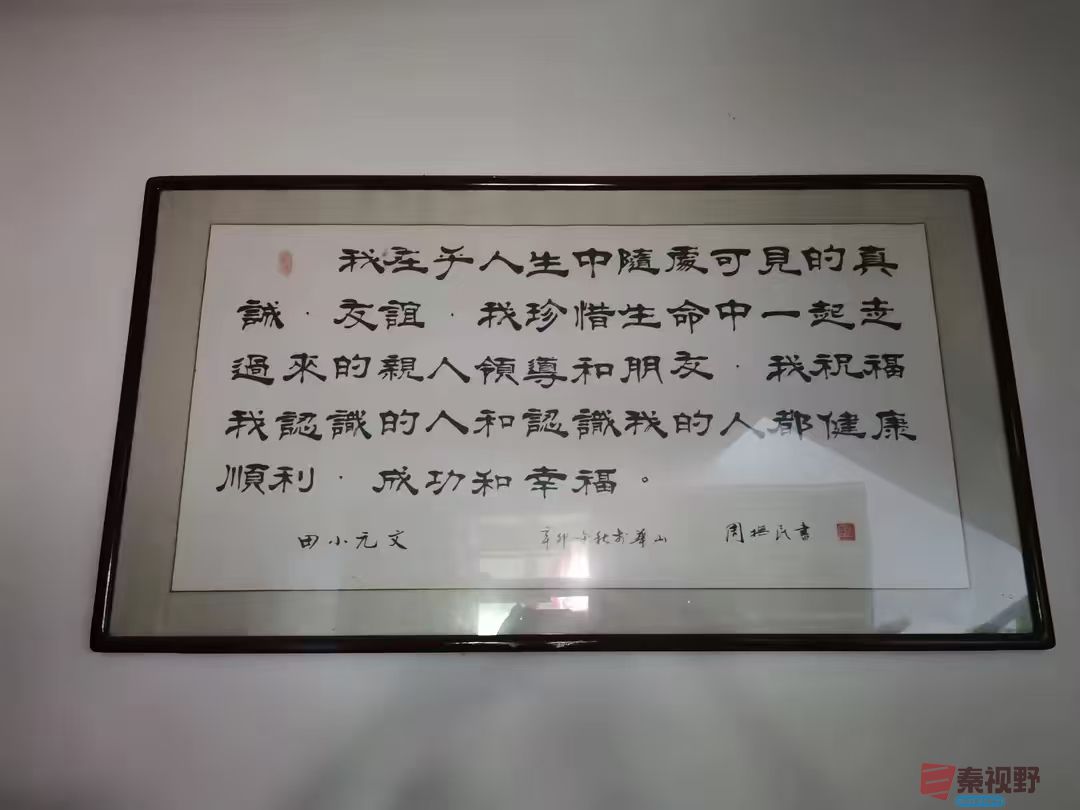 我在乎人生中隨處可見的真
誠·友誼·我珍惜生命中一起走
過來的親人領導和朋友·我祝福
我認識的人和認識我的人都健康
順利·成功和幸福。
田小元文
辛卯年秋於華山
周撫民書
秦视野